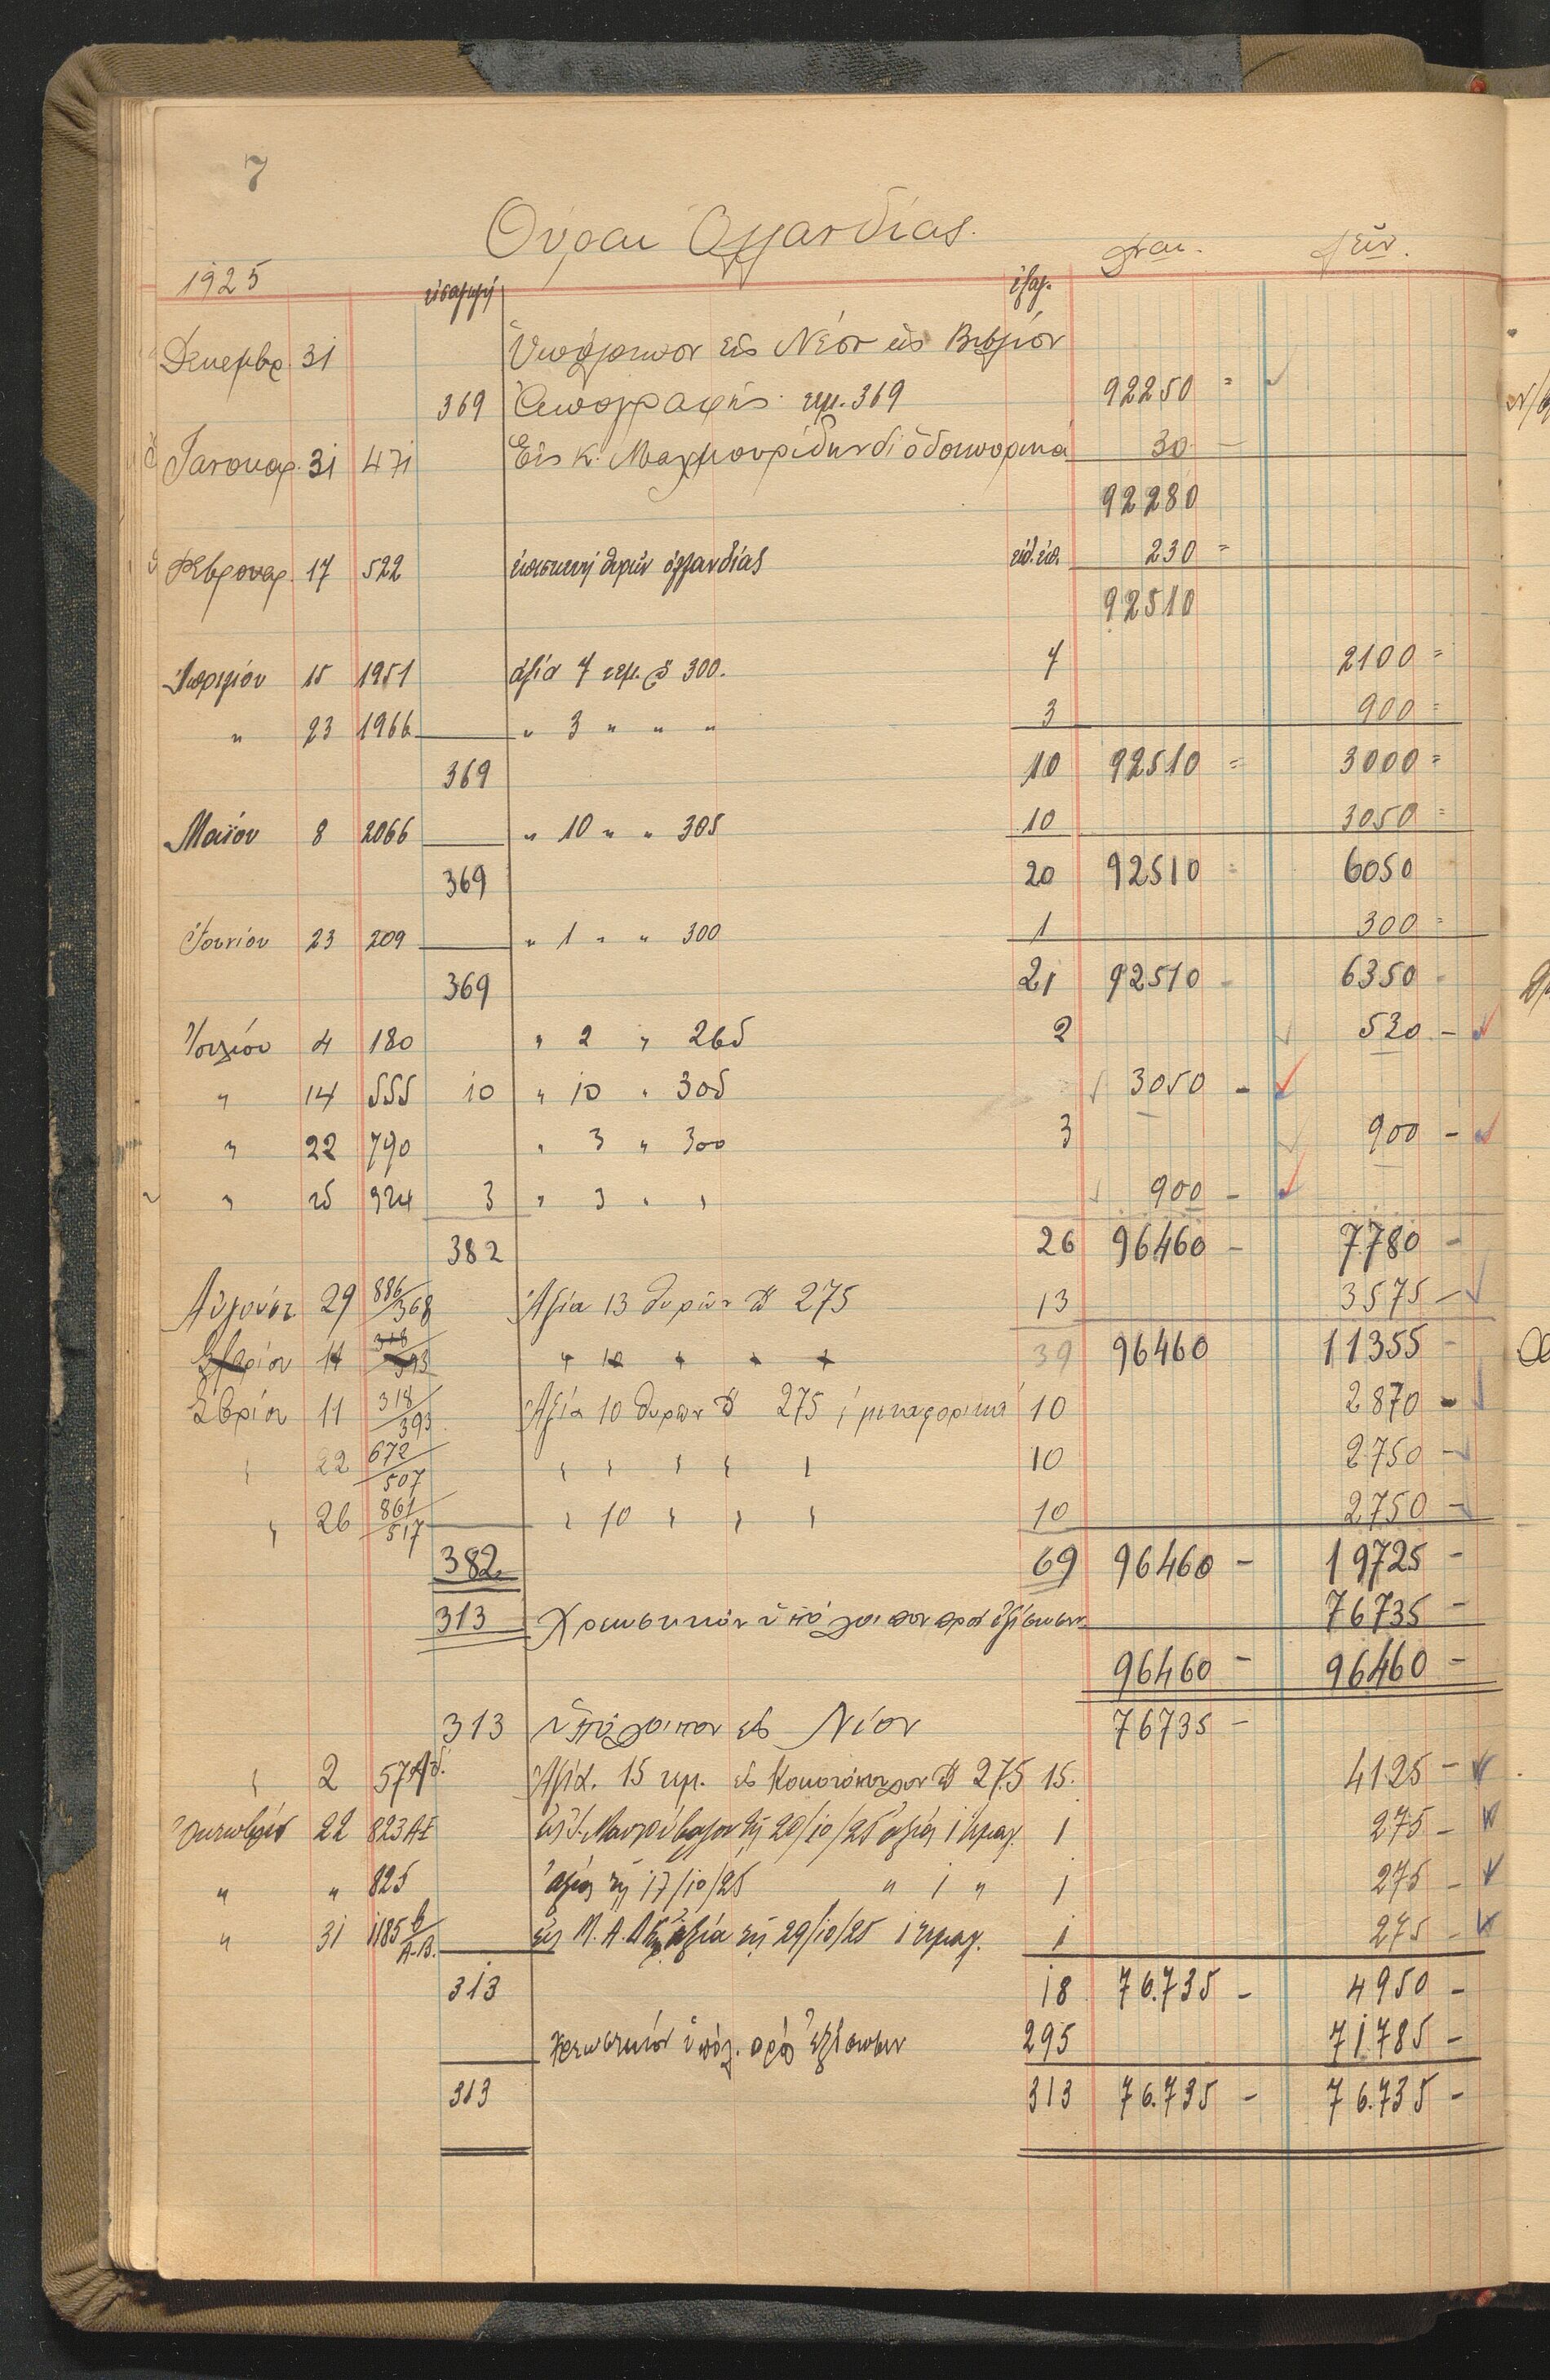 7
Θύραι Ὁλλανδίας.
1925 εἰσαγωγή ἐξαγ.
Δεκεμβρ. 31 Ὑπόλοιπον εἰς Νέον ὡς Βιβλίον
369 Ἀπογραφῆς τεμ. 369 92250 =
Ἰανουαρ. 31 471 Εἰς κ. δι' ὁδοιπορικά 30 —
92280
Φεβρουαρ. 17 522 ἐπισκευή θυρῶν ὁλλανδίας 230 =
92510
Ἀπριλίου 15 1951 ἀξία 7 τεμ. πρ 300. 7 2100 =
" 23 1966 " 3 " " " 3 900 =
369 10 92510 = 3000 =
Μαΐου 8 2066 " 10 " " 305 10 3050 =
369 20 92510 = 6050
Ἰουνίου 23 209 " 1 " " 300 1 300 =
369 21 92510 - 6350 -
Ἰουλίου 4 180 " 2 " 265 2 530 -
" 14 555 10 " 10 " 305 3050 -
" 22 790 " 3 " 300 3 900 -
" 25 924 3 " 3 " " 900 -
382 26 96460 - 7.780 -
Αὐγούστ 29 886/368 Ἀξία 13 θυρῶν πρ 275 13 3575 -
Σβρίου 11 318/393 " 10 " " " 39 96460 11355 -
Σβρίου 11 318/393 Ἀξία 10 θυρῶν πρ 275 μεταφορικά 10 2870 -
" 22 672/507 " " " " " 10 2750 -
" 26 861/517 " 10 " " " 10 2750 -
382 69 96460 - 19725 -
313 Χρεωστικόν ὑπόλοιπον πρός ἐξίσωσιν 76735 -
96460 - 96460 -
313 ὑπόλοιπον εἰς Νέον 76735 -
" 2 57 Ἀξία 15 τεμ. εἰς πρ 275 15. 4125 -
Ὀκτωβρίου 22 823 τῇ 20/10/25 ἀξία 1 τεμαχ. 1 275 -
" " 825 ἀξία τῇ 17/10/25 " 1 " 1 275 -
" 31 1185 6/Α.Β. εἰς ἀξία τῇ 29/10/25 1 τεμαχ. 1 275 -
313 18 76.735 - 4950 -
χρεωστικόν ὑπόλ. πρός ἐξίσωσιν 295 71785 -
313 313 76.735 - 76.735 -